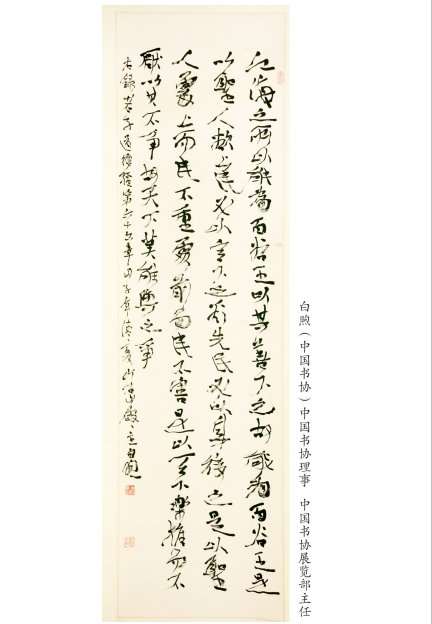 江海之所以能為百谷王以其善下之故能為百谷王是
以聖人欲上民必以言下之欲先民必以身後之是以聖
人處上而民不重處前而民不害是以天下樂推而不
厭以其不爭故天下莫能與之爭
右錄老子道德經第六十六章
白煦（中国书协）中国书协理事　中国书协展览部主任